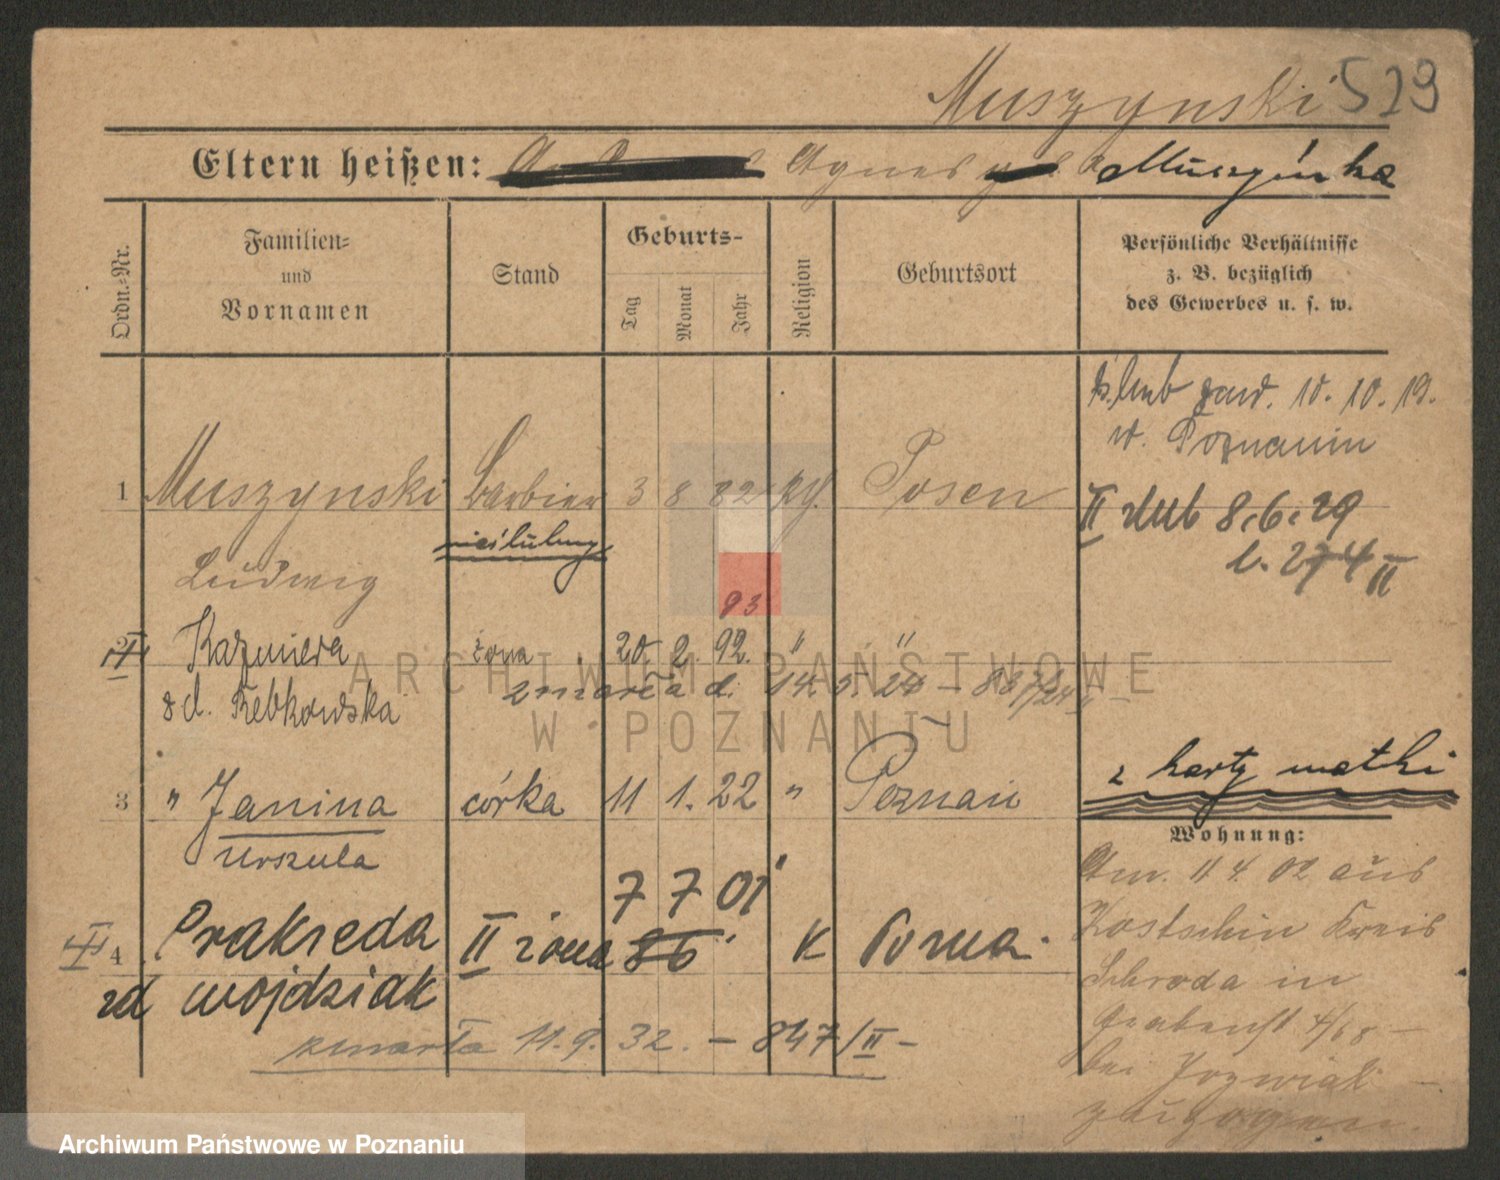 Muszynski 529
Eltern heißen: Agnes Muszyńska
Ordn.-Nr.
Familien-
und
Vornamen
Stand
Geburts-
Tag
Monat
Jahr
Religion
Geburtsort
Persönliche Verhältnisse
z. B. bezüglich
des Gewerbes u. s. w.
ślub zaw. 10. 10. 19.
w. Poznaniu
1 Muszynski Barbier 3 8 82 Posen
II ślub 8.6.29
l. 274 II
Ludwig
93
2 Kazmiera żona 20. 2. 92. " "
zd. Rebkowska zmarła d. 14. 5. 24
ARCHIWUM PAŃSTWOWE
W POZNANIU
z karty matki
3 " Janina córka 11 1. 22 " Poznań
Urszula
Wohnung:
Am. 11 4. 02 aus
Kostschin Kreis
Schroda in
4/68
bei Jozwiak
zugezogen.
7 7 01
4 Prakseda II żona 86 K Pozna.
zd Wojdziak
zmarła 11. 9. 32. – 847/II –
Archiwum Państwowe w Poznaniu